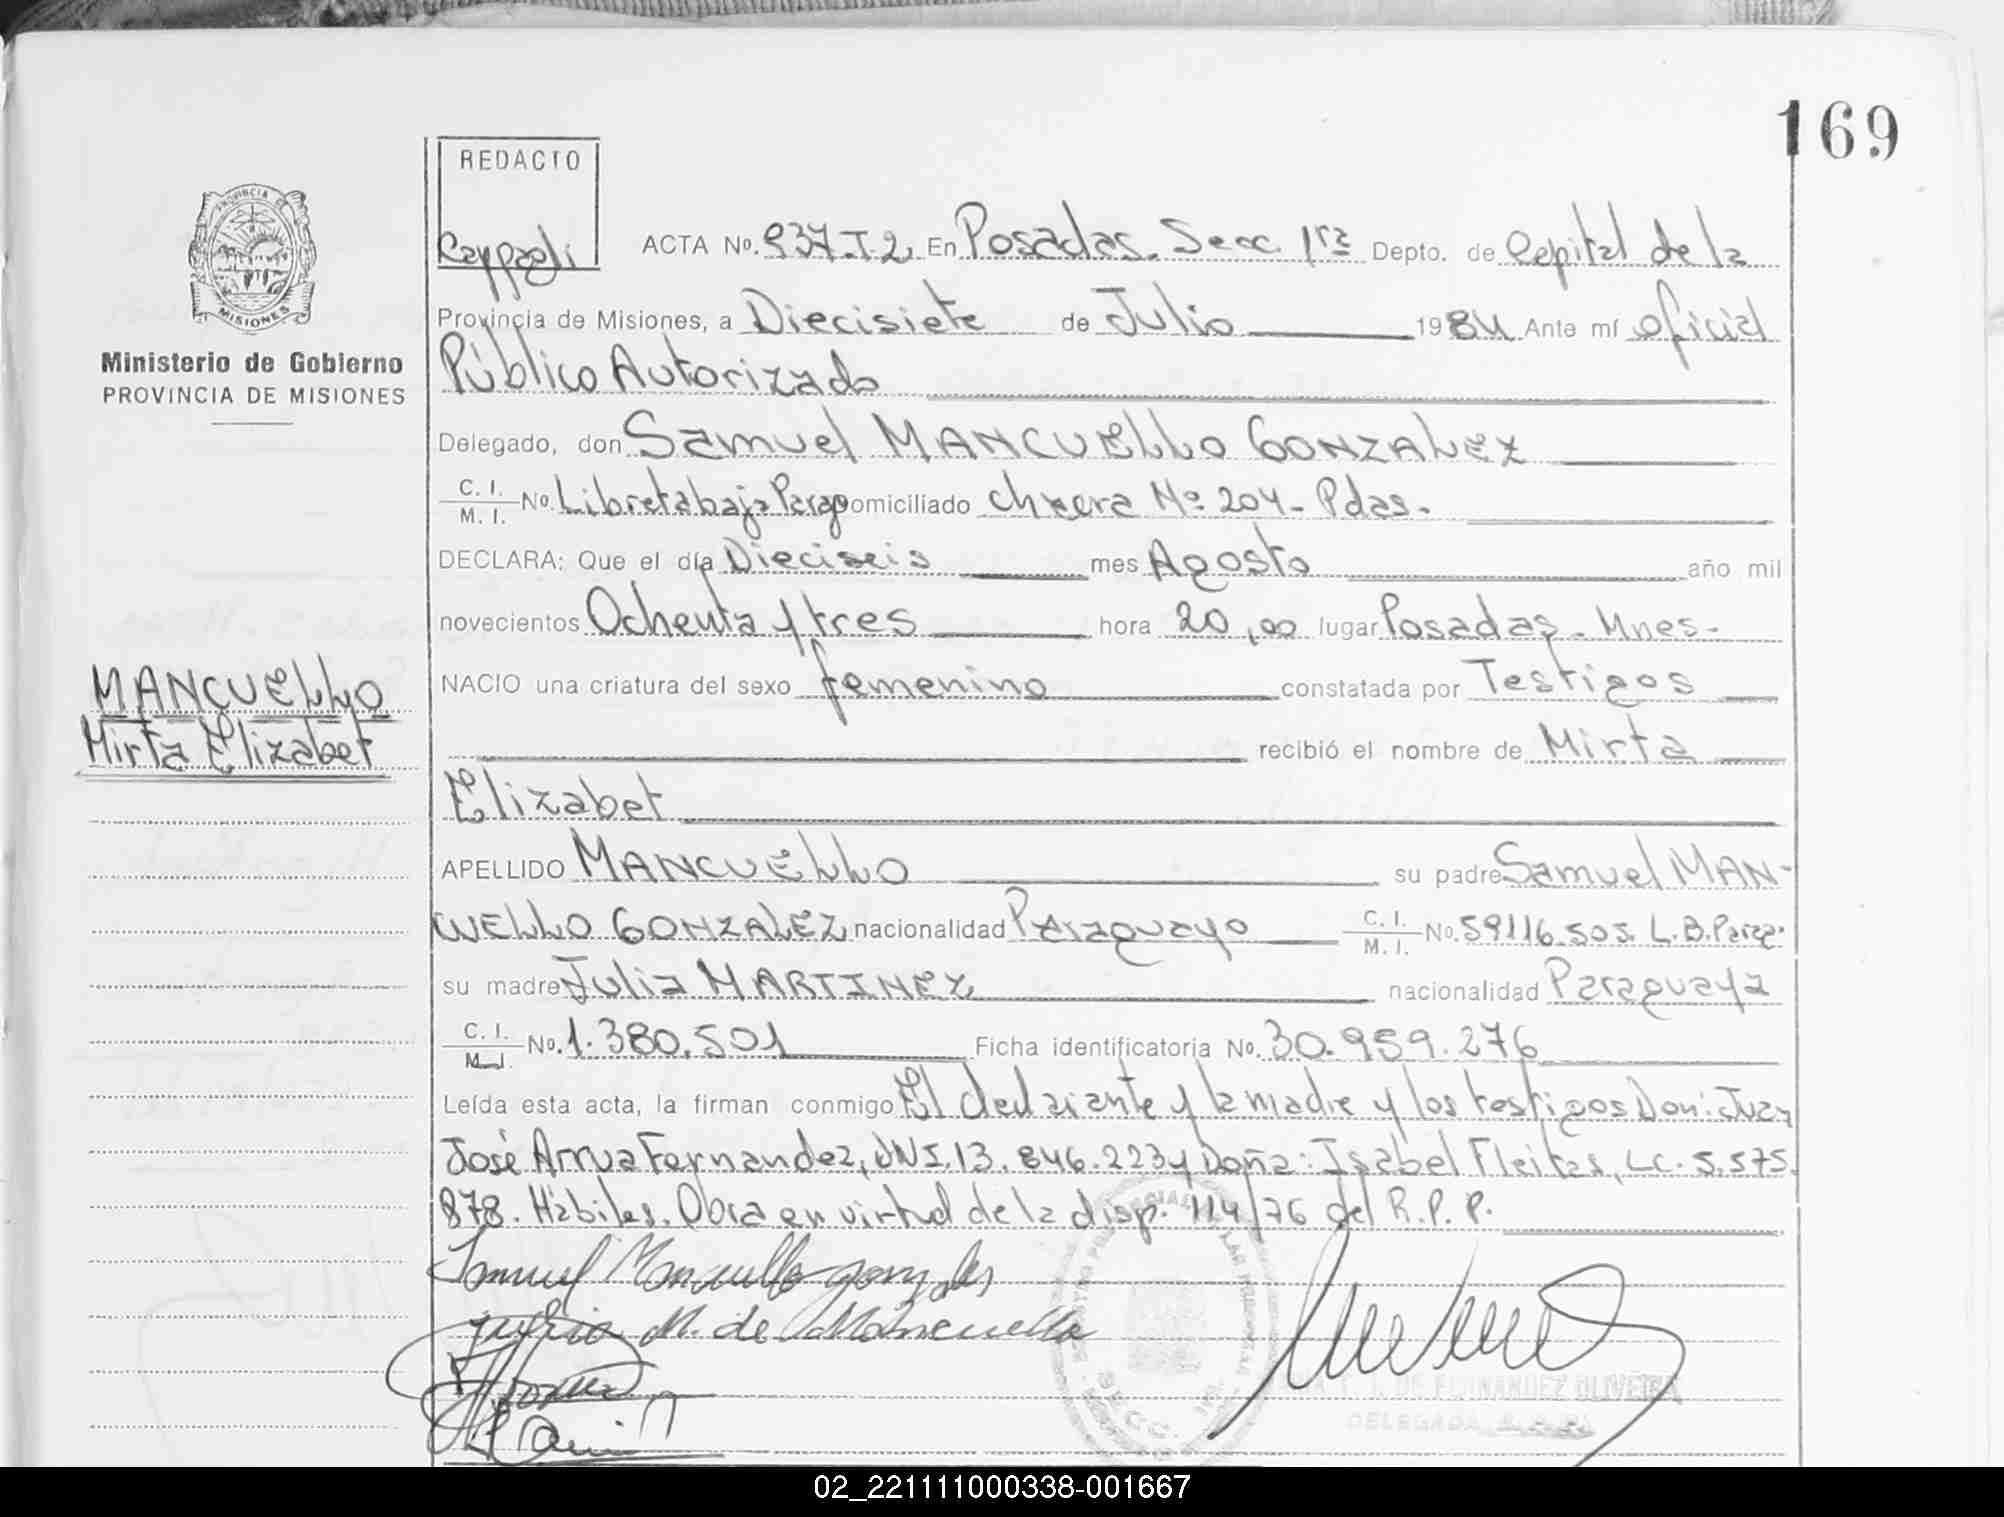 169
REDACTO
ACTA No. 937.T.2. En Posadas. Secc. 1ra Depto. de Capital de la
Provincia de Misiones, a Diecisiete de Julio 1984 Ante mí oficial
PROVINCIA DE
MISIONES
Ministerio de Gobierno
PROVINCIA DE MISIONES
Público Autorizado
Delegado, don Samuel MANCUELLO GONZALEZ
C. I. / M. I. No. Libreta baja Parag Domiciliado chacra Nº 204 - Pdas.
DECLARA: Que el día Dieciseis mes Agosto año mil
novecientos Ochenta y tres hora 20,00 lugar Posadas - Mnes -
NACIO una criatura del sexo femenino constatada por Testigos
MANCUELLO
Mirta Elizabet
recibió el nombre de Mirta
Elizabet
APELLIDO MANCUELLO su padre Samuel MAN-
CUELLO GONZALEZ nacionalidad Paraguayo C. I. / M. I. No. 59116.505. L.B. Parag.
su madre Julia MARTINEZ nacionalidad Paraguaya
C. I. / M. I. No. 1.380.501 Ficha identificatoria No. 30.959.276
Leída esta acta, la firman conmigo El declarante y la madre y los testigos Don: Juan
José Arrua Fernandez, DNI. 13.846.223 y Doña: Isabel Fleitas, LC. 5.575.
878. Hábiles. Obra en virtud de la disp. 114/76 del R. P. P.
Samuel Mancuello gonzales
Julia M. de Mancuello
DE FERNANDEZ OLIVEIRA
DELEGADA
SECC.
02_221111000338-001667